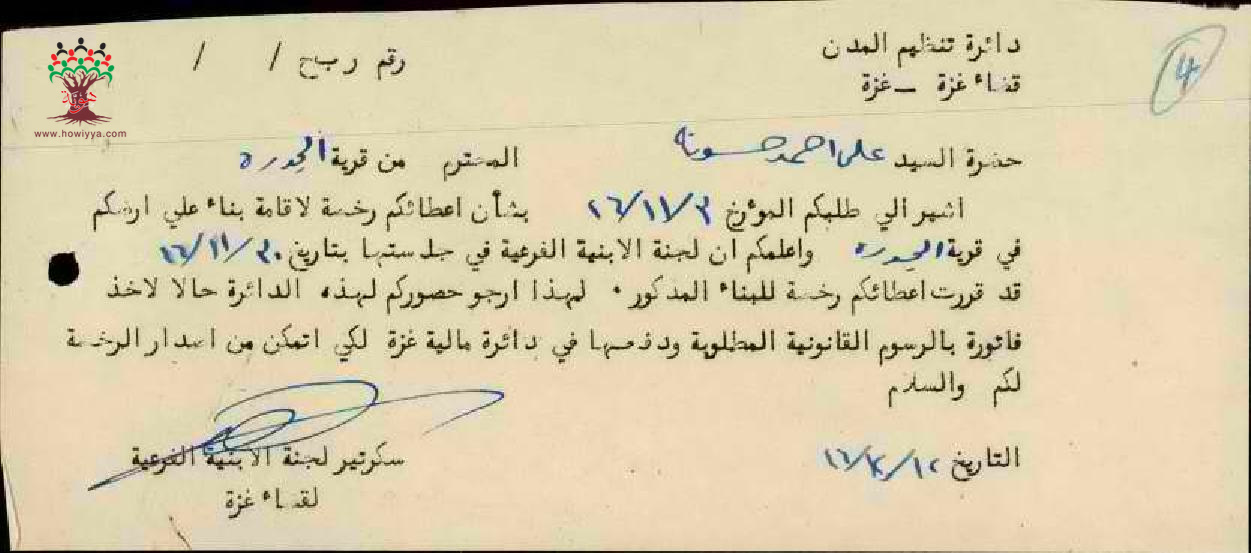 دائرة تنظيم المدن
رقم ر ب ح / /
قضاء غزة — غزة
4
www.howiyya.com
حضرة السيد على احمد حسونه المحترم من قرية الجوره
اشير الي طلبكم المؤرخ ٣/١١/٤٦ بشأن اعطائكم رخصة لاقامة بناء علي ارضكم
في قرية الجوره واعلمكم ان لجنة الابنية الفرعية في جلستها بتاريخ
قد قررت اعطائكم رخصة للبناء المذكور . لهذا ارجو حضوركم لهذه الدائرة حالا لاخذ
فاتورة بالرسوم القانونية المطلوبة ودفعها في دائرة مالية غزة لكي اتمكن من اصدار الرخصة
لكم والسلام
التاريخ
سكرتير لجنة الابنية الفرعية
لقضاء غزة